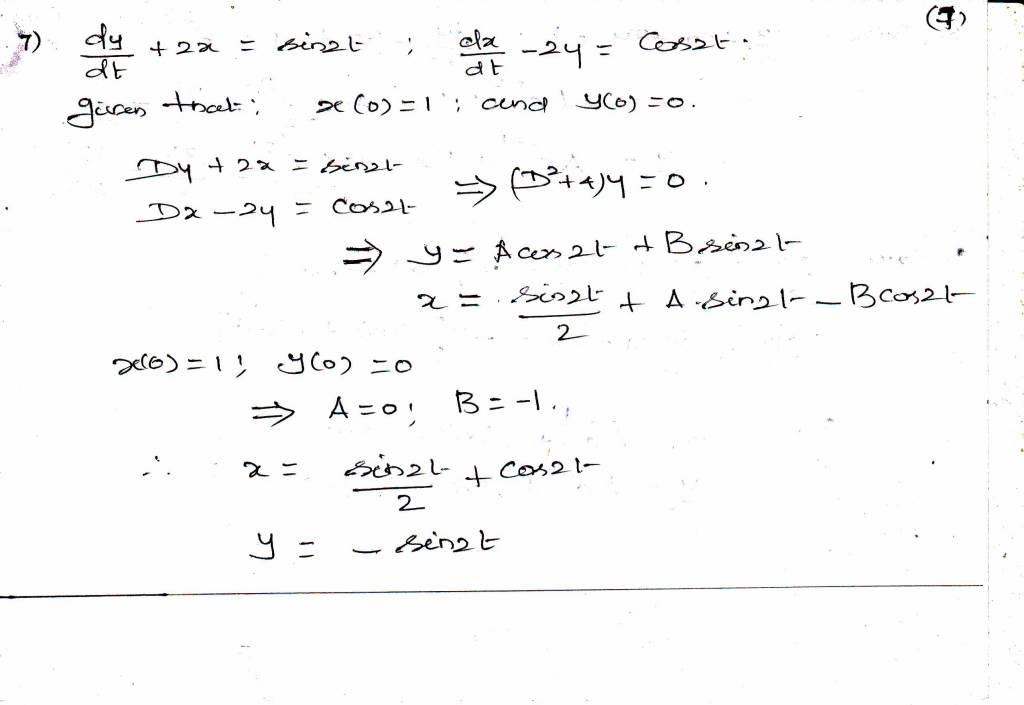 (7)
7) dy/dt + 2x = sin2t ; dx/dt - 2y = Cos2t.
given that; x(0)=1 ; and y(0)=0.
Dy + 2x = sin2t
Dx - 2y = Cos2t ⇒ (D²+4)y = 0.
⇒ y = A cos2t + B sin2t
x = sin2t/2 + A sin2t - B cos2t
x(0)=1; y(0)=0
⇒ A=0; B=-1.
∴ x = sin2t/2 + Cos2t
y = - sin2t